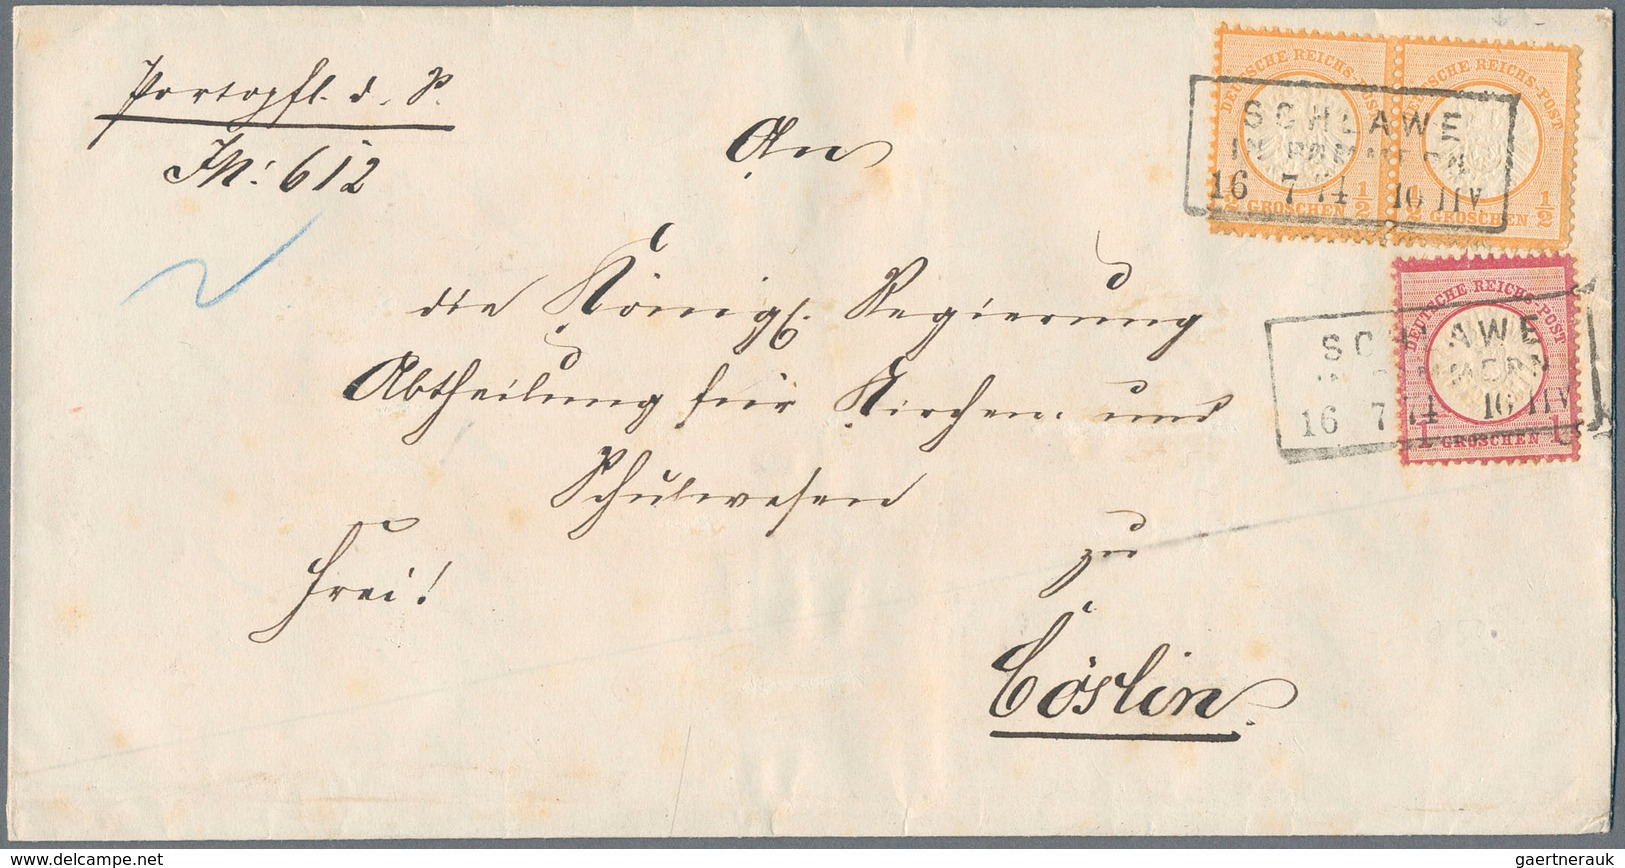 Portopfl. d. S.
JN: 612
An
die Königl. Regierung
Abtheilung für Kirchen- und
Schulwesen
zu
Frei!
Cöslin.
DEUTSCHE REICHS-POST
1/2 GROSCHEN 1/2
DEUTSCHE REICHS-POST
1/2 GROSCHEN 1/2
SCHLAWE
IN POMMERN
16 7 74 10 11V
DEUTSCHE REICHS-POST
1 GROSCHEN 1
SCHLAWE
IN POMMERN
16 7 74 10 11V
delcampe.net
gaertnerauk